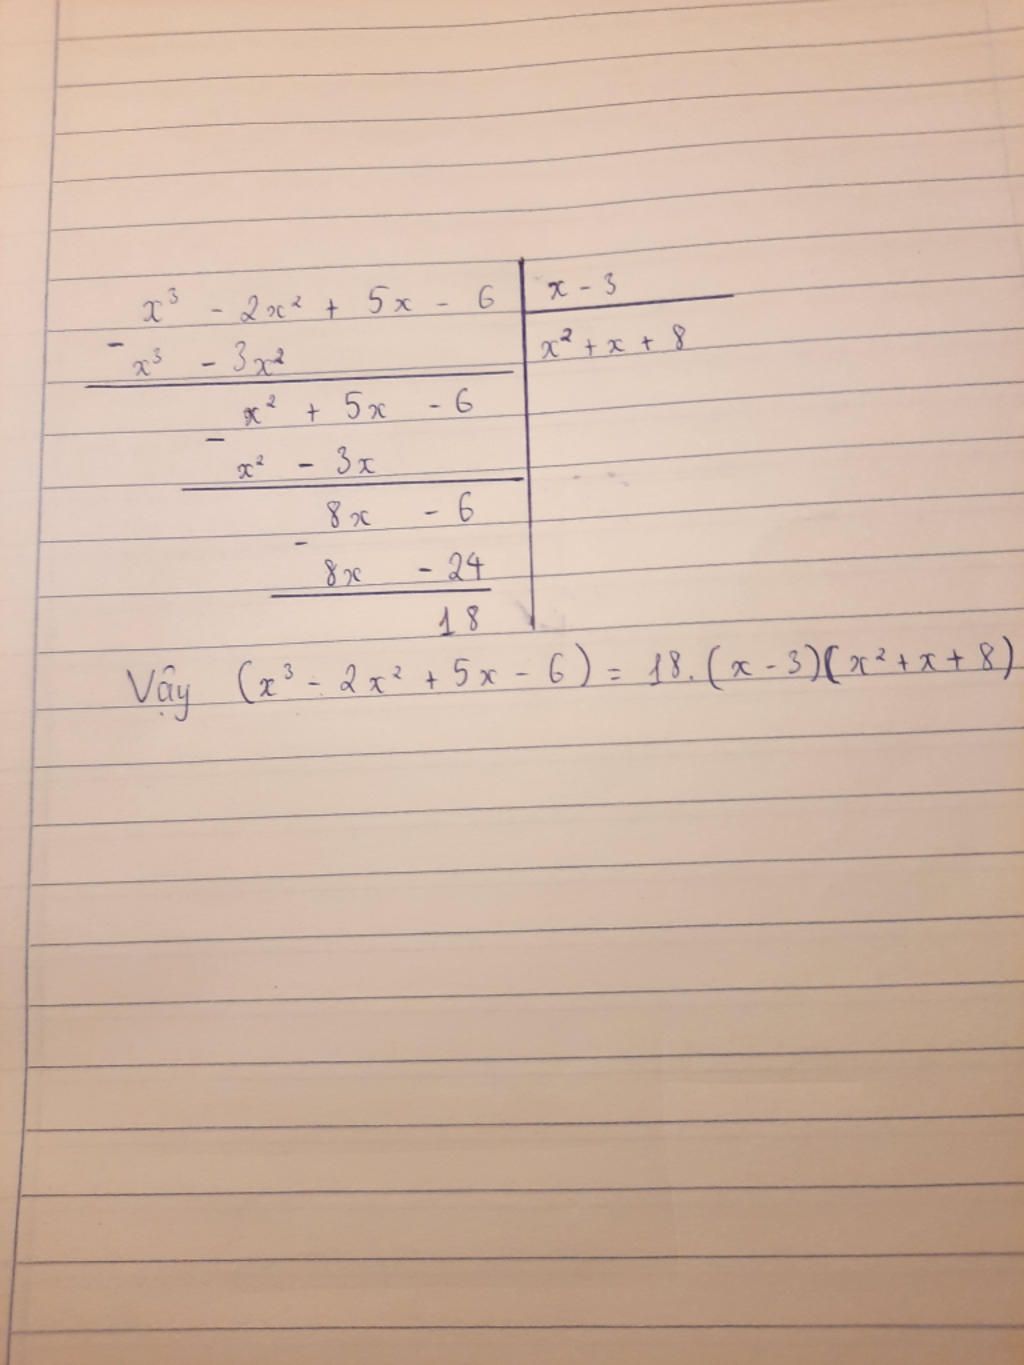 x³ - 2x² + 5x - 6 | x - 3
- x³ - 3x² | x² + x + 8
x² + 5x - 6
- x² - 3x
8x - 6
- 8x - 24
18
Vậy (x³ - 2x² + 5x - 6) = 18.(x - 3)(x² + x + 8)